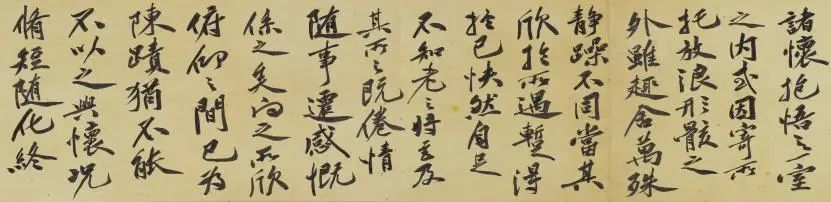 諸懷抱悟言一室
之内或因寄所
托放浪形骸之
外雖趣舍萬殊
静躁不同當其
欣於所遇暫得
於己快然自足
不知老之將至及
其所之既倦情
随事遷感慨
係之矣向之所欣
俯仰之間已為
陳蹟猶不能
不以之興懷况
脩短随化終